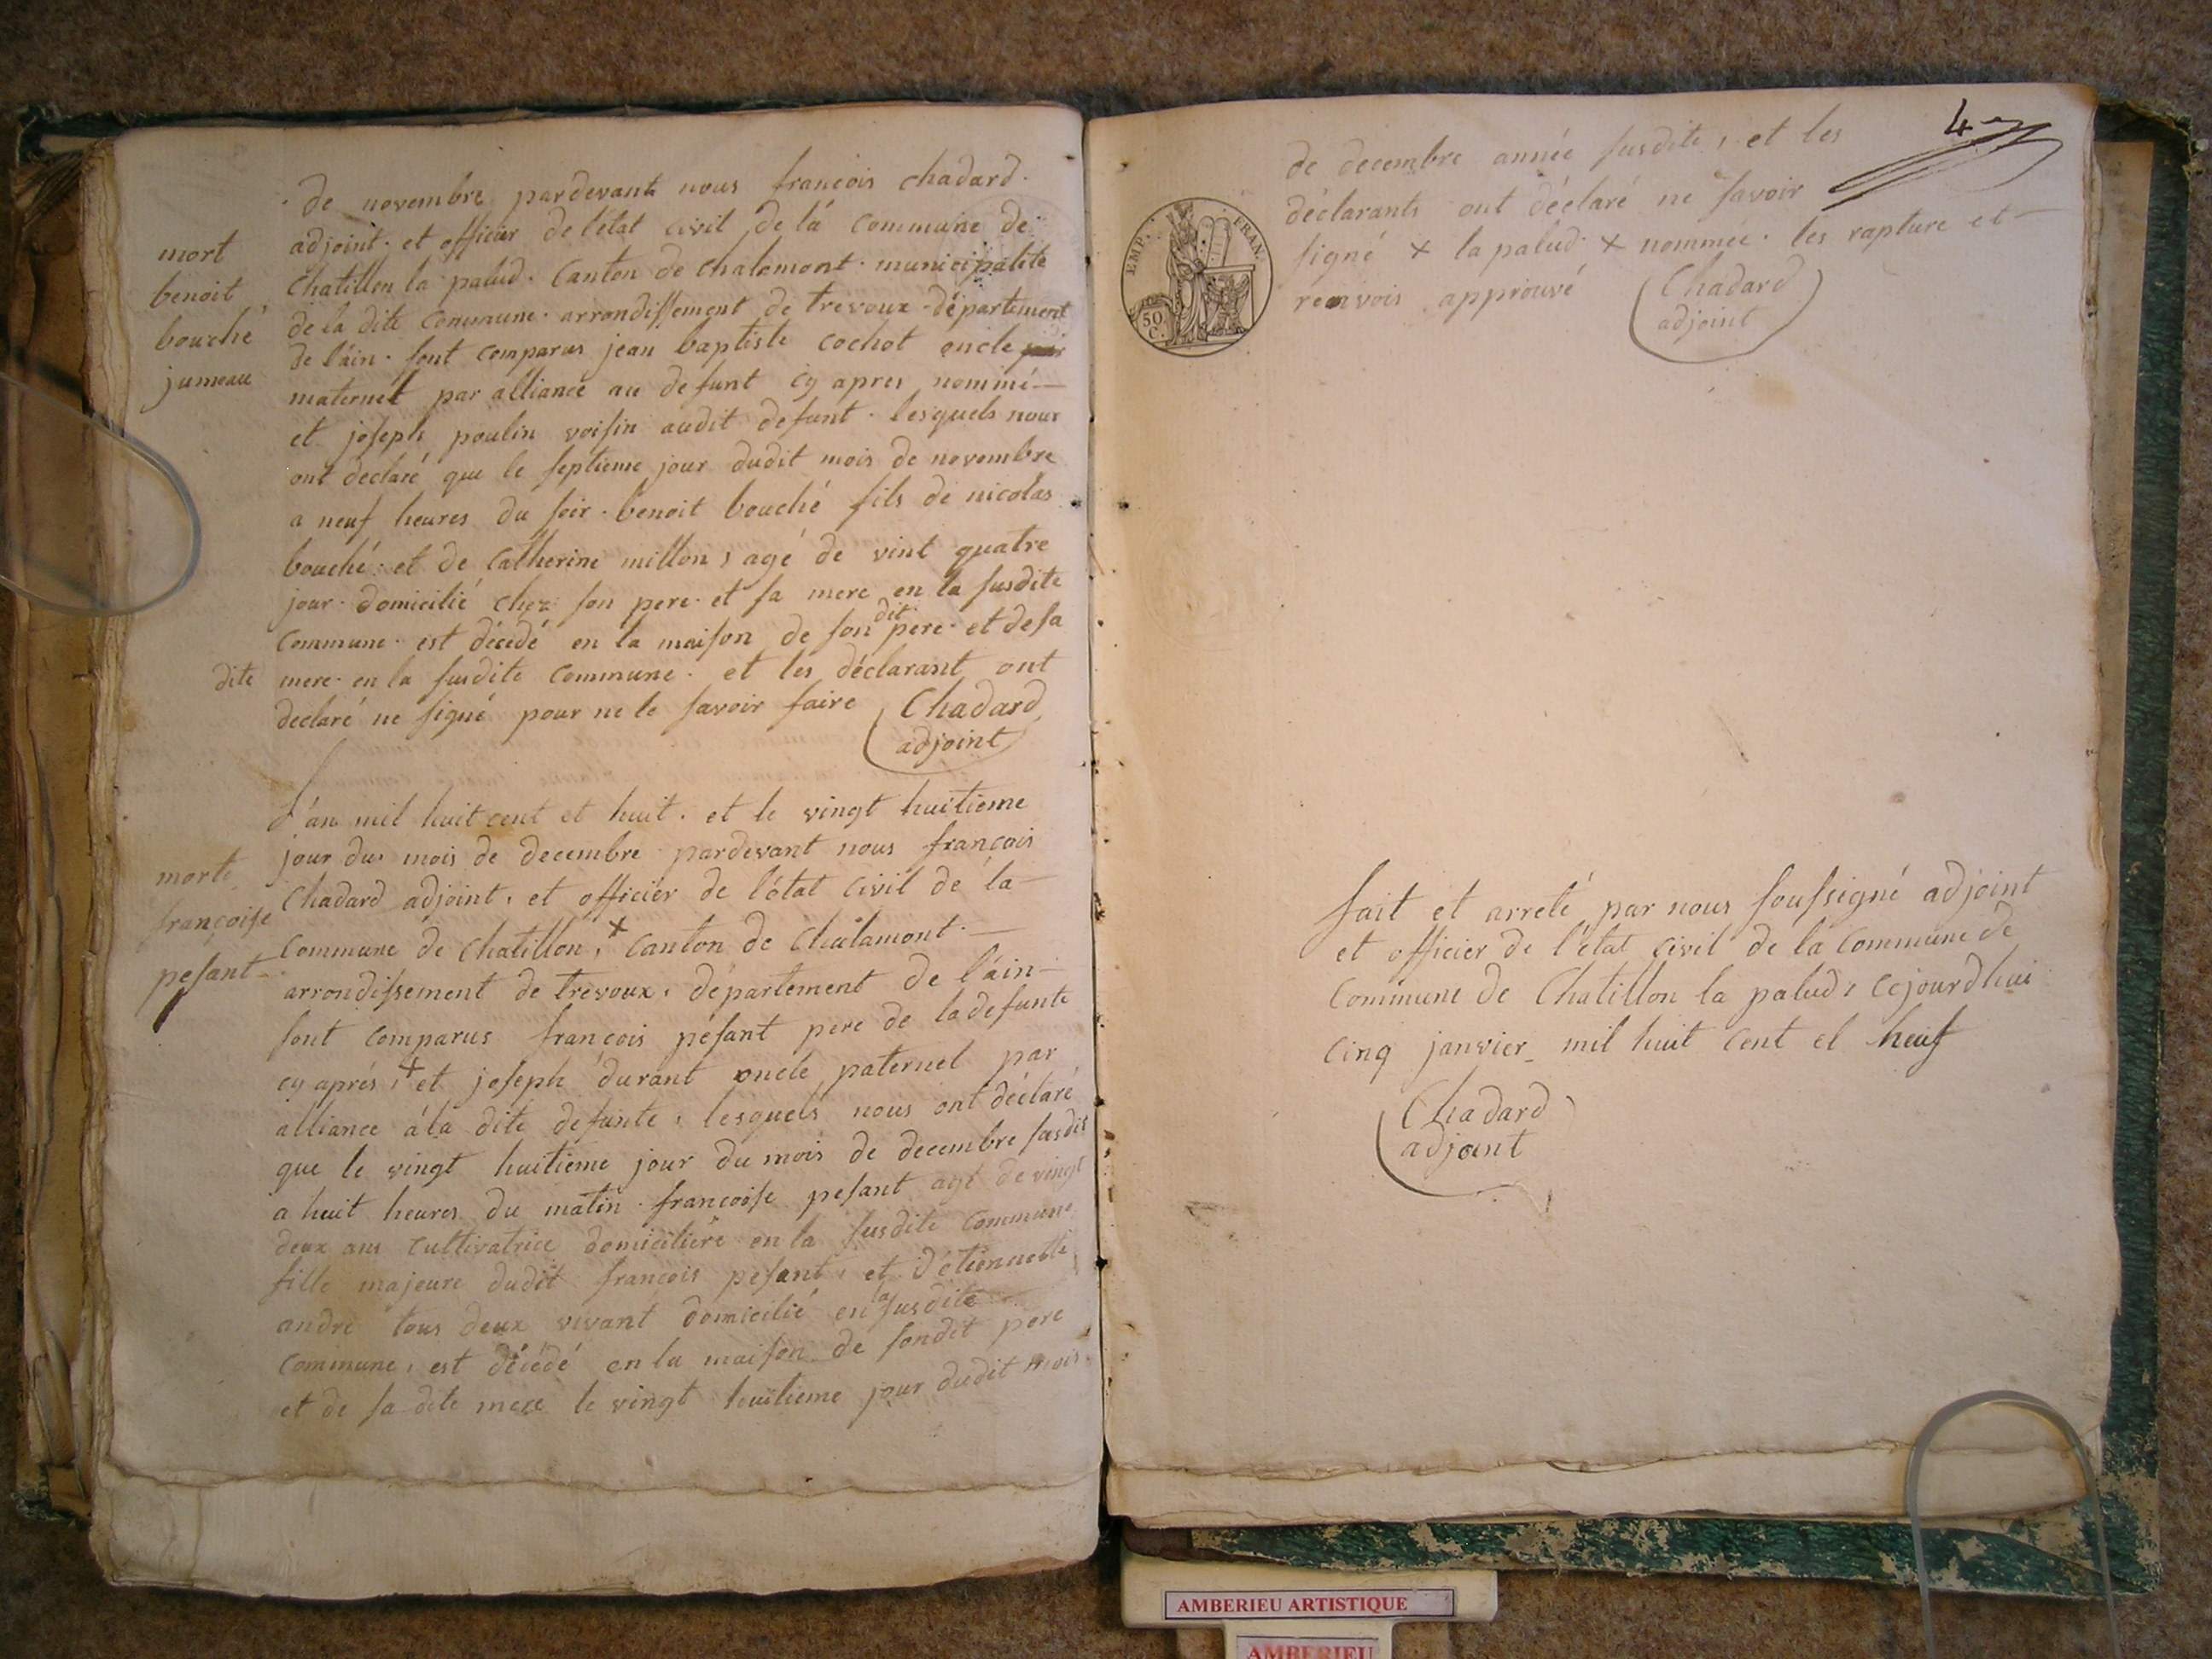 de novembre pardevant nous francois chadard
mort
adjoint et officier de létat civil de la commune de
benoit
chatillon la palud. canton de chalamont. municipalité
bouché
de la dite commune. arrondissement de trevoux département
jumeau
de láin. sont comparus jean baptiste cochot oncle
maternel par alliance au defunt cy apres nommé
et joseph poulin voisin audit defunt. lesquels nous
ont declaré que le septieme jour dudit mois de novembre
a neuf heures du soir. benoit bouché fils de nicolas
bouché. et de catherine millon, agé de vint quatre
jour. domicilié chez son pere. et sa mere en la susdite
commune. est décedé en la maison de son dit pere. et de sa
dite mere. en la susdite commune. et les déclarant ont
declaré ne signé pour ne le savoir faire Chadard
adjoint
L'án mil huit cent et huit. et le vingt huitieme
jour du mois de decembre pardevant nous francois
morte
Chadard adjoint, et officier de létat civil de la
francoise
commune de chatillon, + canton de chalamont.
pesant
arrondissement de trevoux, département de láin
sont comparus francois pésant pere de la defunte
cy aprés, + et joseph durant oncle paternel par
alliance á la dite defunte, lesquels nous ont déclaré
que le vingt huitieme jour du mois de decembre susdit
a huit heures du matin. francoise pesant agé de vingt
deux ans cultivatrice domiciliére en la susdite commune
fille majeure dudit francois pesant, et détiennette
andré tous deux vivant domicilié en la susdite
commune, est décédé en la maison de sondit pere
et de sa dite mere le vingt huitieme jour dudit mois
4
de decembre année susdite, et les
déclarants ont déclaré ne savoir
signé + la palud + nommée. les rapture et
renvois approuvé Chadard
adjoint
EMP. FRAN.
50 C.
fait et arreté par nous soussigné adjoint
et officier de l'état civil de la commune de
commune de Chatillon la palud, cejourdhui
cinq janvier mil huit cent et neuf
Chadard
adjoint
AMBERIEU ARTISTIQUE
AMBERIEU